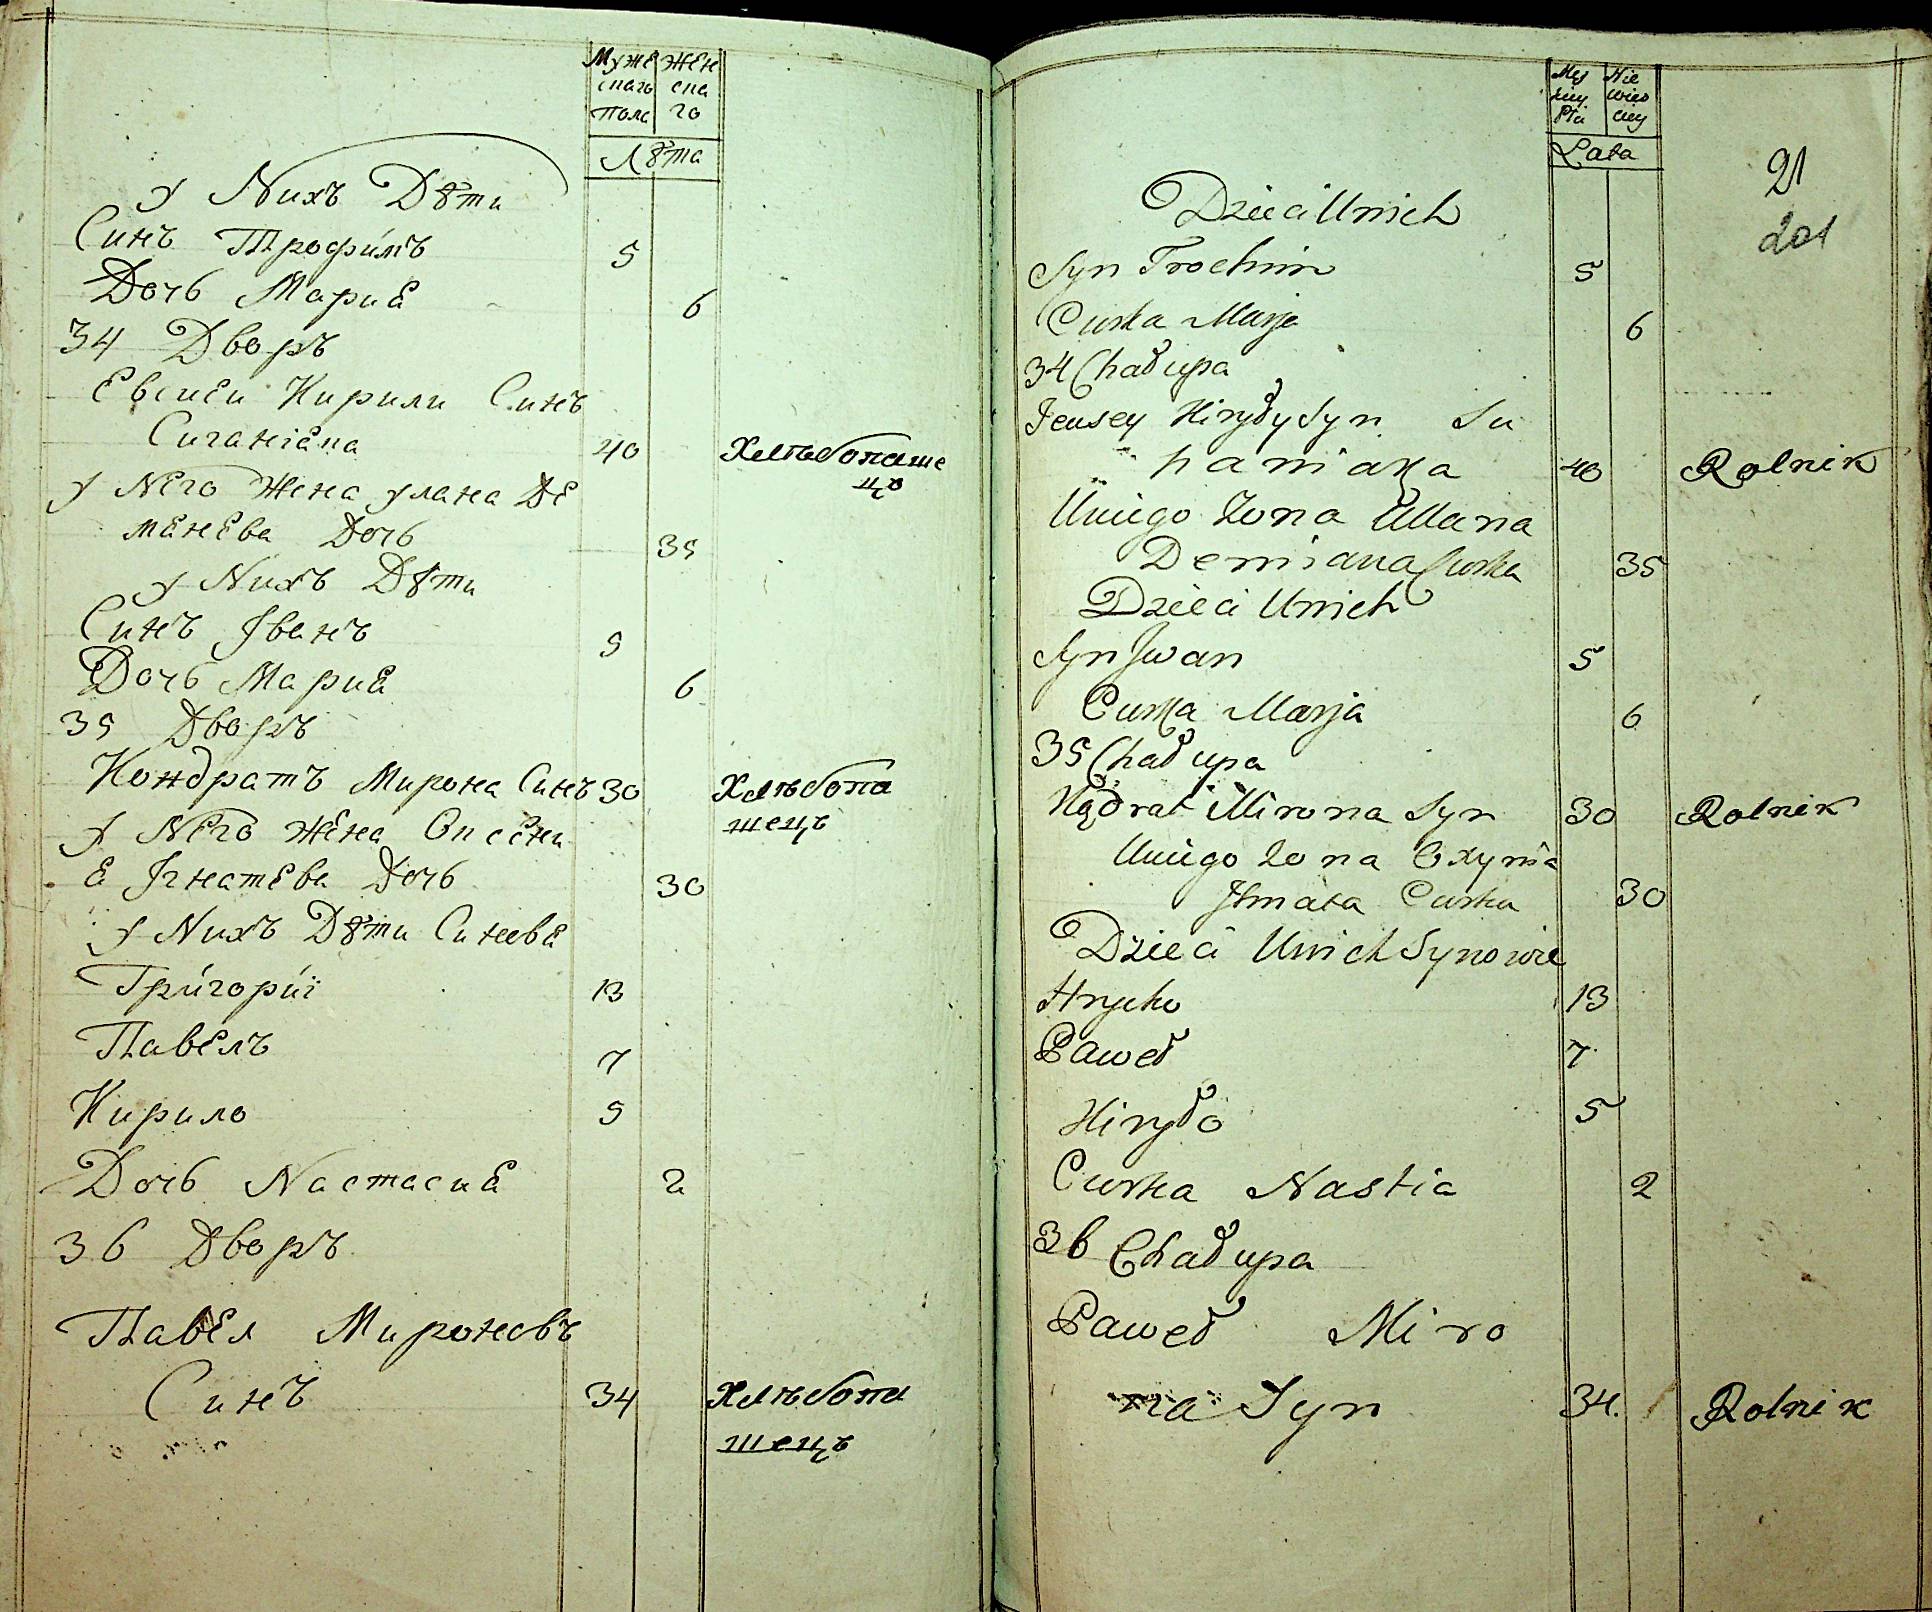 Муже Жен
скаго ска
Пола го
Лѣта
у Nихъ Дѣти
Синъ Трофимъ 5
Дочь Мариѣ 6
34 Дворъ
Евсиѣи Кирили Синъ
Сиганіѣка 40 Хлѣбопаше
цъ
у Nѣго Жена улана Дѣ
мѣнѣва Дочь 35
у Nихъ Дѣти
Синъ Іванъ 5
Дочь Мариѣ 6
35 Дворъ
Кондратъ Мирона Синъ 30 Хлѣбопа
шецъ
у Nѣго жѣна
Ігнатѣва Дочь 30
у Nихъ Дѣти Синовѣ
Григорій 13
Павелъ 7
Кирило 5
Дочь Nастасиѣ 2
36 Дворъ
Павел Мироновъ
Синъ 34 Хлѣбопа
шецъ
Męz Nie
kiey wieś
Płci ciey
Lata
21
201
Dzieci Unich
Syn Trochim 5
Curka Marja 6
34 Chałupa
Jeusey Kiryły Syn Su
haniaka 40 Rolnik
Uniego Żona Ullana
Demiana Curka 35
Dzieci Unich
Syn Jwan 5
Curka Marja 6
35 Chałupa
Kądrat Mirona Syn 30 Rolnik
Uniego Żona Oxynia
Jhnata Curka 30
Dzieci Unich Synowie
Hryćko 13
Paweł 7
Kiryło 5
Curka Nastia 2
36 Chałupa
Paweł Miro
na Syn 34. Rolnik